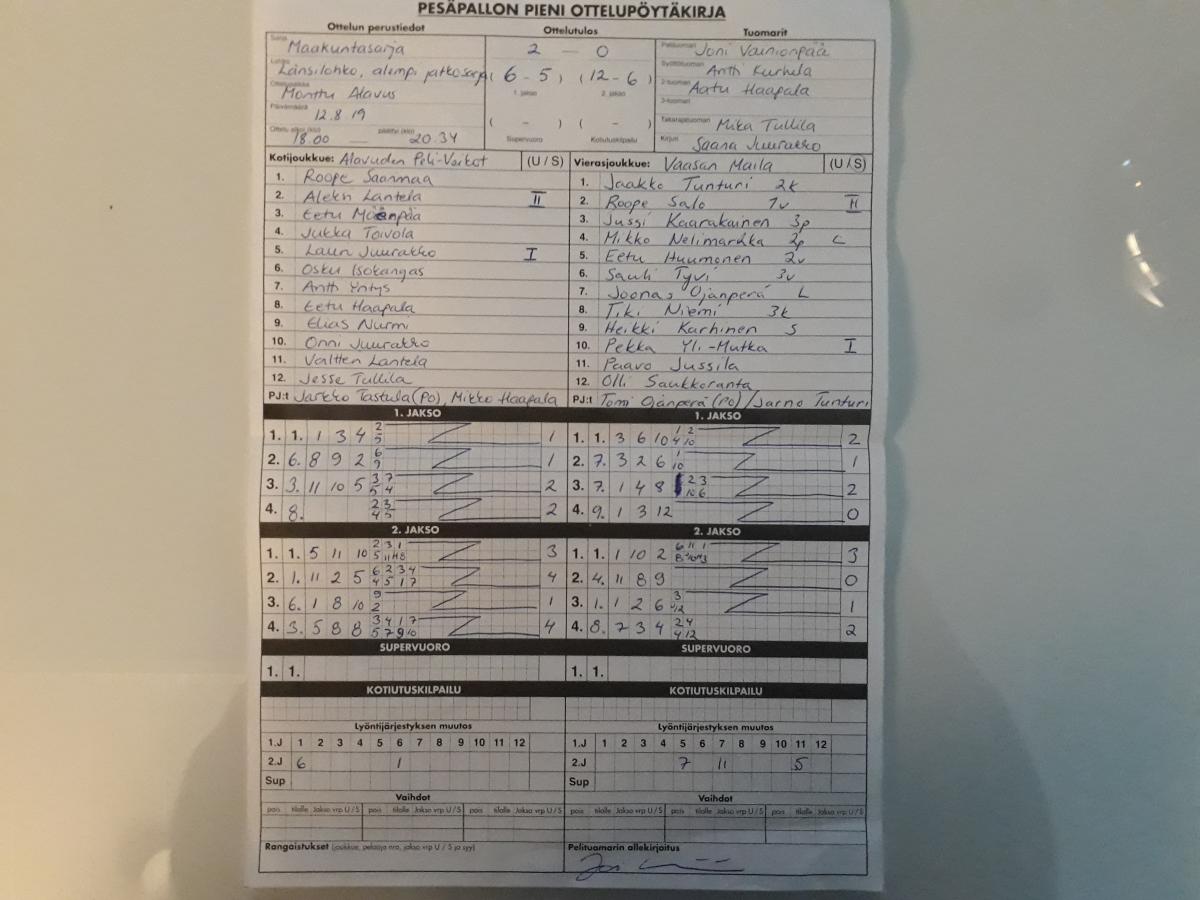 PESÄPALLON PIENI OTTELUPÖYTÄKIRJA
Ottelun perustiedot Ottelutulos Tuomarit
Sarja Maakuntasarja 2 - 0 Pelituomari Joni Vainionpää
Lohko Länsilohko, alempi jatkosarja (6 - 5) (12 - 6) Syöttötuomari Antti Kurhela
1. jakso 2. jakso 2-tuomari Aatu Haapala
Ottelupaikka Monttu Alavus 3-tuomari
Päivämäärä 12.8.19 ( - ) ( - ) Takarajatuomari Mika Tullila
Ottelu alkoi (klo) 18.00 — päättyi (klo) 20.34 Supervuoro Kotiutuskilpailu Kirjuri Saana Juurakko
Kotijoukkue: Alavuden Peli-Veikot (U / S) Vierasjoukkue: Vaasan Maila (U / S)
1. Roope Saarimaa 1. Jaakko Tunturi 2k
2. Aleksi Lantela II 2. Roope Salo 1v II
3. Eetu Mäenpää 3. Jussi Kaarakainen 3p
4. Jukka Toivola 4. Mikko Nelimarkka 2p L
5. Lauri Juurakko I 5. Eetu Huumonen 2v
6. Osku Isokangas 6. Sauli Tyvi 3v
7. Antti Yntys 7. Joonas Ojanperä L
8. Eetu Haapala 8. Tiki Niemi 3k
9. Elias Nurmi 9. Heikki Karhinen S
10. Onni Juurakko 10. Pekka Yli-Mutka I
11. Valtteri Lantela 11. Paavo Jussila
12. Jesse Tullila 12. Olli Saukkoranta
PJ:t Jarkko Tastula (PO), Mikko Haapala PJ:t Tomi Ojanperä (PO) / Jarno Tunturi
1. JAKSO 1. JAKSO
1. 1. 1 3 4 2/5 1 1. 1. 3 6 10 1/4 2/10 2
2. 6. 8 9 2 6/9 1 2. 7. 3 2 6 1/10 1
3. 3. 11 10 5 3/5 7/4 2 3. 7. 1 4 8 2 3 2
4. 8. 2/4 3/5 2 4. 9. 1 3 12 0
2. JAKSO 2. JAKSO
1. 1. 5 11 10 2/5 3/11 1/8 3 1. 1. 1 10 2 3
2. 1. 11 2 5 6/4 2/5 3/1 4/7 4 2. 4. 11 8 9 0
3. 6. 1 8 10 9/2 1 3. 1. 1 2 6 3/12 1
4. 3. 5 8 8 3/5 4/7 1/9 7/10 4 4. 8. 7 3 4 2/4 4/12 2
SUPERVUORO SUPERVUORO
1. 1. 1. 1.
KOTIUTUSKILPAILU KOTIUTUSKILPAILU
Lyöntijärjestyksen muutos Lyöntijärjestyksen muutos
1.J 1 2 3 4 5 6 7 8 9 10 11 12 1.J 1 2 3 4 5 6 7 8 9 10 11 12
2.J 6 1 2.J 7 11 5
Sup Sup
Vaihdot Vaihdot
pois tilalle Jakso vrp U / S pois tilalle Jakso vrp U / S pois tilalle Jakso vrp U / S pois tilalle Jakso vrp U / S pois tilalle Jakso vrp U / S pois tilalle Jakso vrp U / S
Rangaistukset (joukkue, pelaaja nro, jakso vrp U / S ja syy) Pelituomarin allekirjoitus